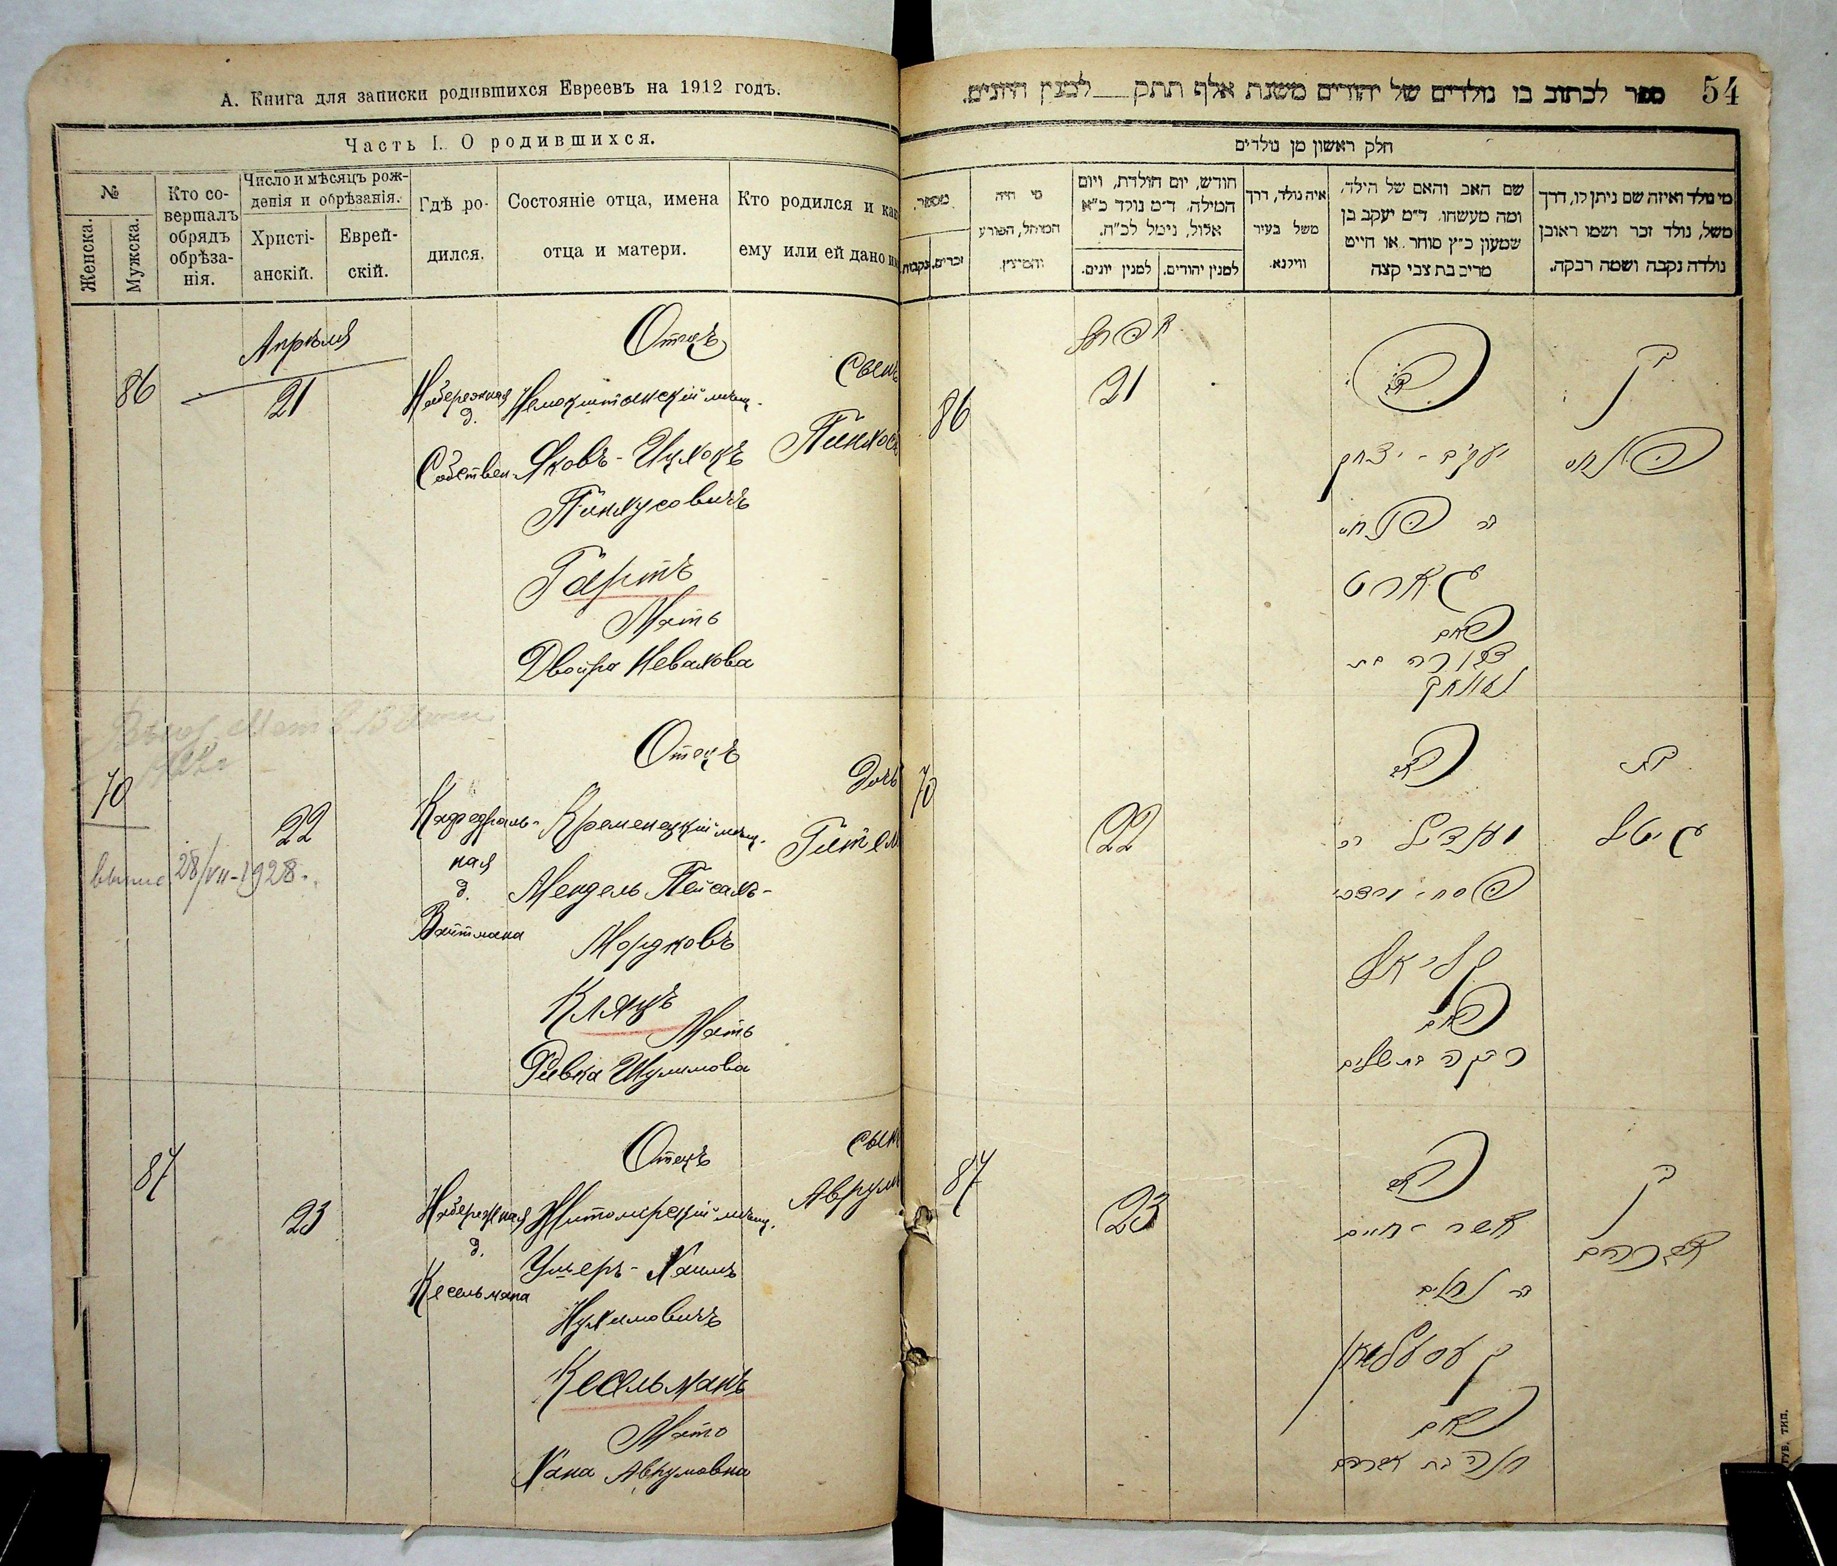 А. Книга для записки родившихся Евреевъ на 1912 годъ.
Часть I. О родившихся.
№
Женска.
Мужска.
Кто со-
вершалъ
обрядъ
обрѣза-
нія.
Число и мѣсяцъ рож-
денія и обрѣзанія.
Христі-
анскій.
Еврей-
скій.
Гдѣ ро-
дился.
Состояніе отца, имена
отца и матери.
Кто родился и как
ему или ей дано
Апрѣля
86
21
Набережная
д.
Собствен.
Отецъ
мѣщ.
Яковъ-Ицхокъ
Пинхусовичъ
Гартъ
Мать
Двойра
Сынъ
Пинхос
70
22
28/VII-1928.
Кафедраль-
ная
д.
Вайтмана
Отецъ
Кременецкій мѣщ.
Мендель Пейсахъ-
Мордковъ
Мать
Ривка Шулимова
Дочь
Гител
87
23
Набережная
д.
Кесельмана
Отецъ
Житомирскій мѣщ.
Ушеръ-Хаимъ
Нухимовичъ
Кесельманъ
Мать
Хана Аврумовна
Сын
Аврум
54
ספר לכתוב בו נולדים של יהודים משנת אלף תתק___למנין היונים.
חלק ראשון מן נולדים
מספר.
נקבות.
זכרים.
מי היה
המוהל, הפורע
והמוצץ.
חודש, יום הולדת, ויום
המילה. ד״מ נולד כ״א
אלול, נימל לכ״ח.
למנין יונים.
למנין יהודים.
איה נולד, דרך
משל בעיר
ווילנא.
שם האב והאם של הילד,
ומה מעשהו. ד״מ יעקב בן
שמעון כ״ץ סוחר או חייט
מרים בת צבי קצה
מי נולד ואיזה שם ניתן לו, דרך
משל, נולד זכר ושמו ראובן
נולדה נקבה ושמה רבקה.
86
אפריל
21
האב
יעקב - יצחק
בר פנחס
גארט
האם
דבורה בת
בן
פנחס
70
22
האב
מענדיל בר
פסח - מרדכי
האם
רבקה בת שלום
בת
גיטל
87
23
האב
אשר - חיים
בר נחום
קעסעלמאן
האם
חנה בת אברהם
בן
אברהם